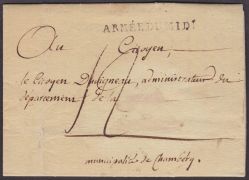 ARMÉE DU MIDI
Au Citoyen,
le Citoyen administrateur du
département de la
municipalité de Chambéry.